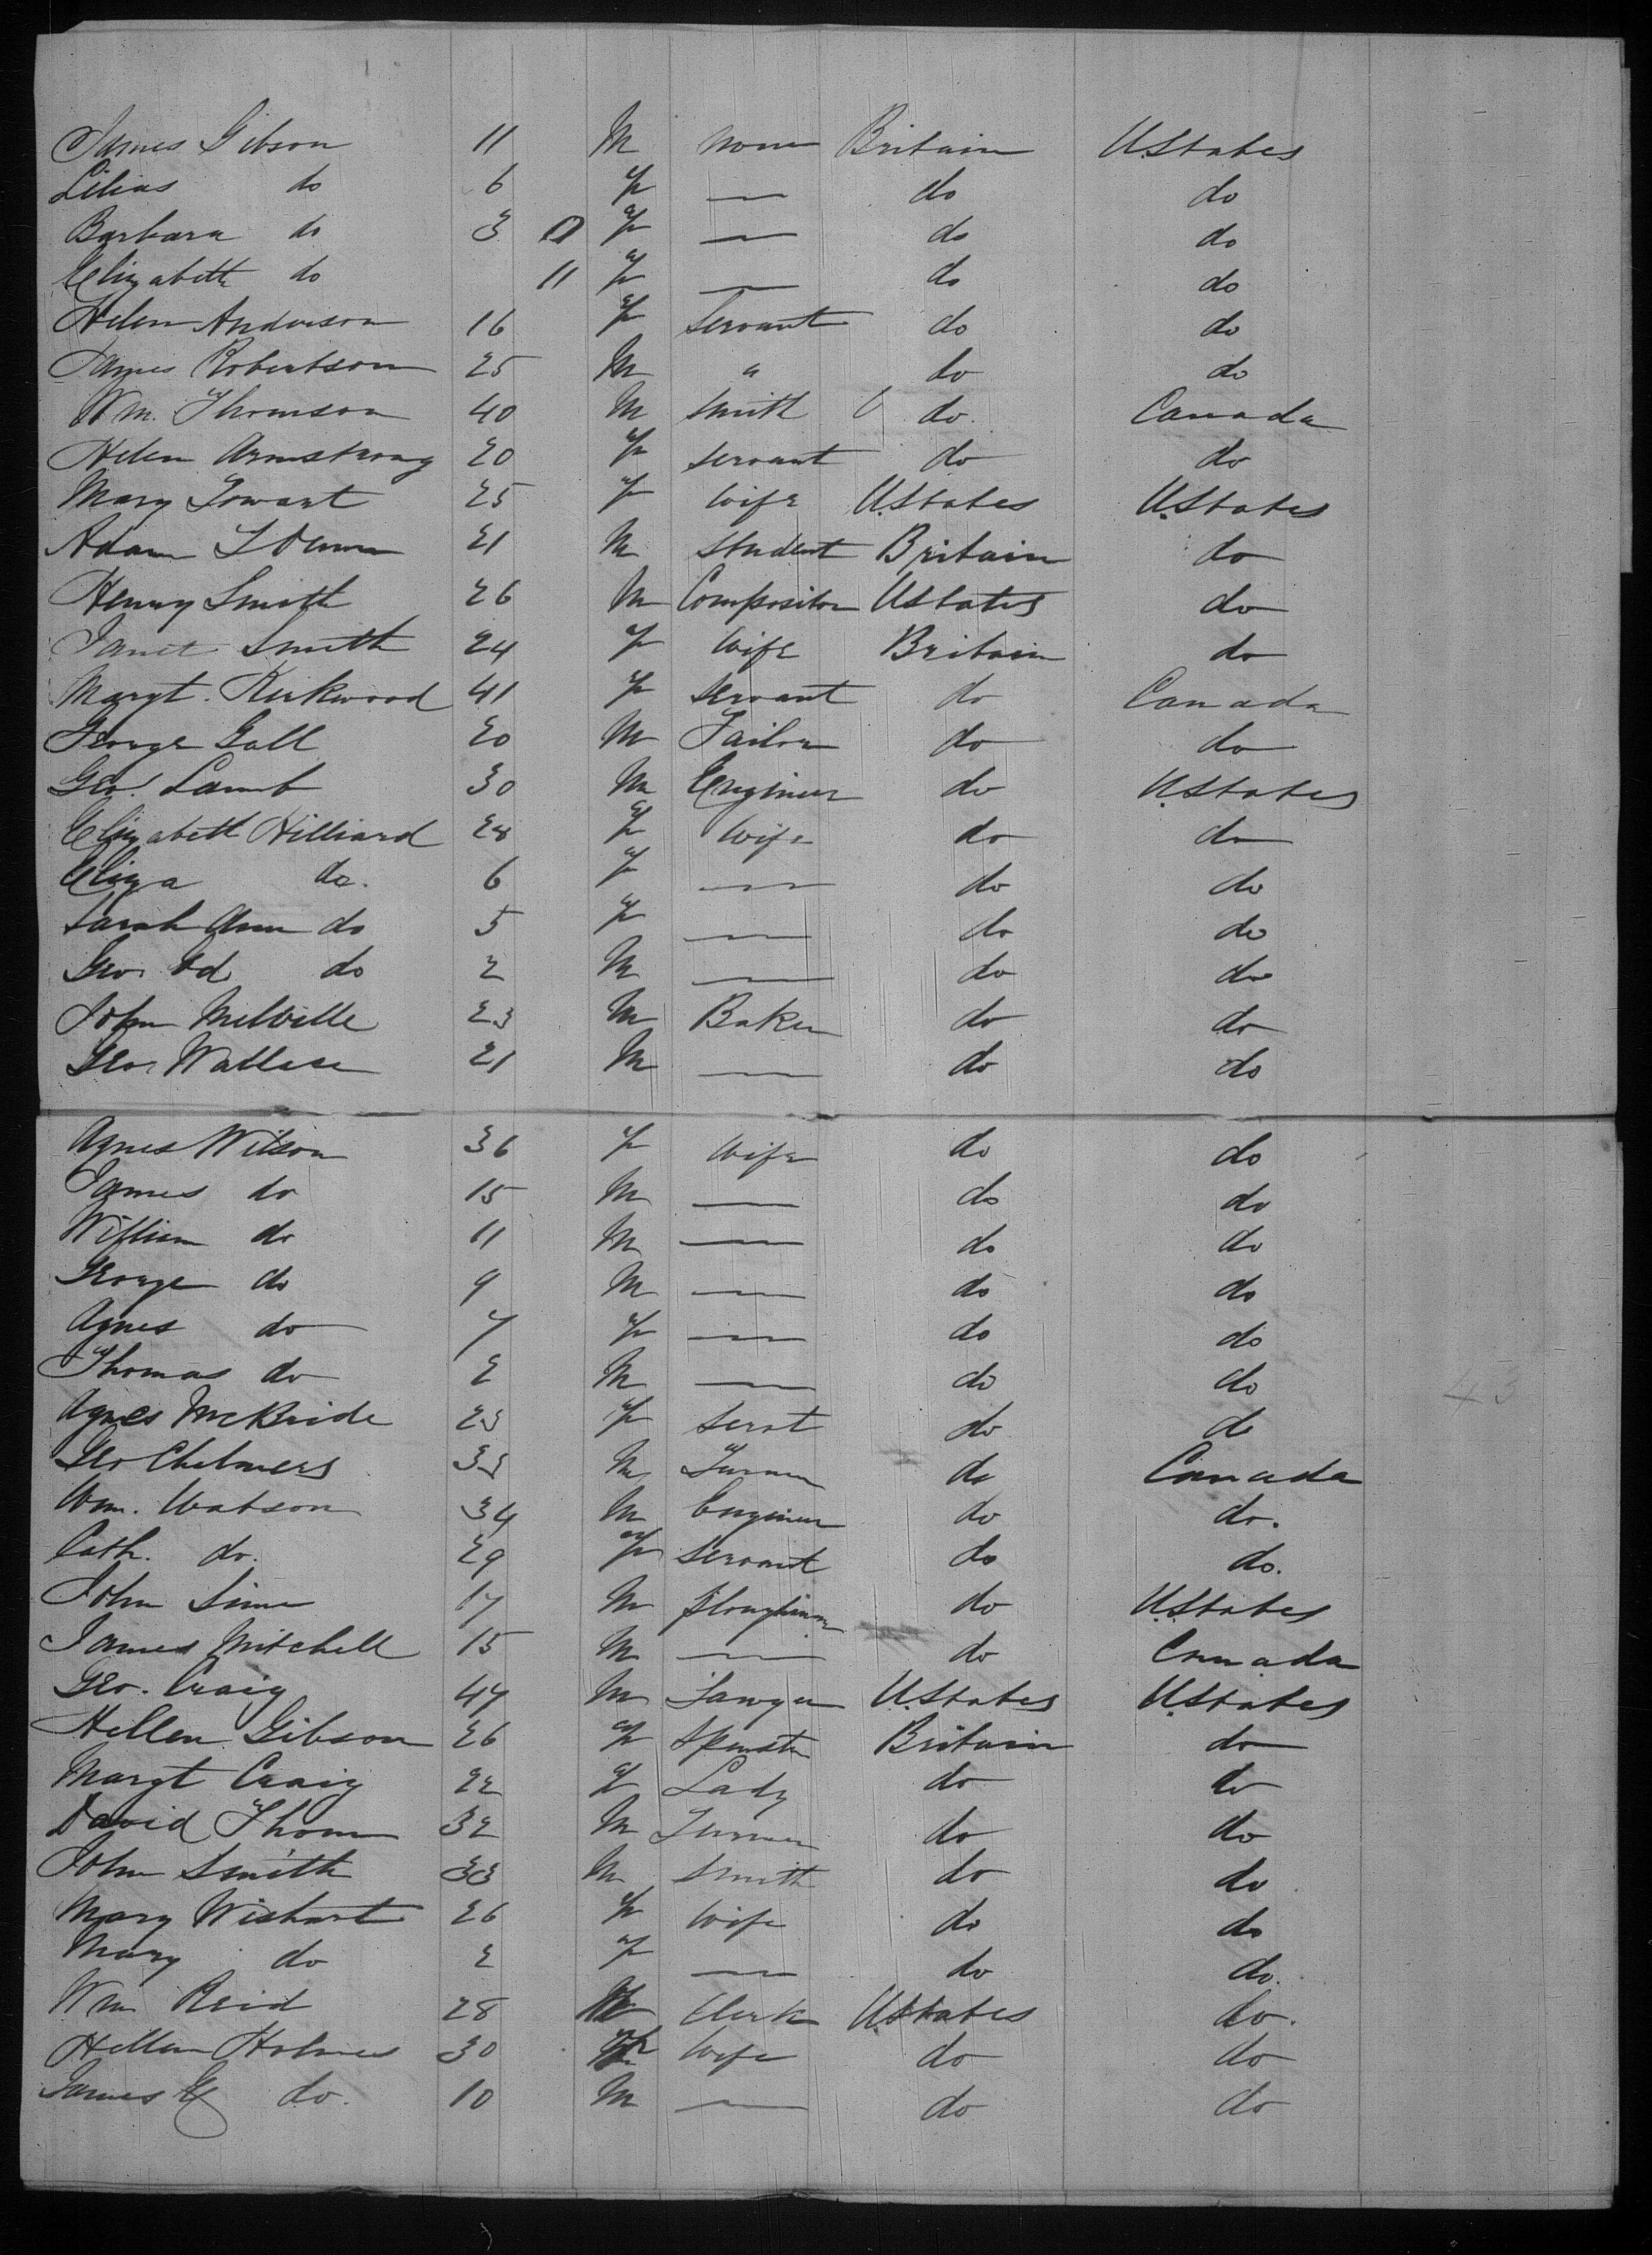 James Gibson 11 M none Britain U.States
Lilias do 6 F — do do
Barbara do 3 0 F — do do
Elizabeth do 11 F — do do
Helen Anderson 16 F Servant do do
James Robertson 25 M " do do
Wm. Thomson 40 M Smith do. Canada
Helen Armstrong 20 F servant do do
Mary Gowart 25 F wife U.States U.States
Adam 21 M student Britain do
Henry Smith 26 M Compositor UStates do
Janet Smith 24 F Wife Britain do
Margt. Kirkwood 41 F servant do Canada
George Gall 20 M Tailor do do
Geo. Lamb 30 M Engineer do U.States
Elizabeth Hilliard 28 F Wife do do
Eliza do. 6 F — do do
Sarah Ann do 5 F — do do
Geo. Ed do 2 M — do do
John Melville 23 M Baker do do
Geo. Wallace 21 M — do do
Agnes Wilson 36 F Wife do do
James do 15 M — do do
William do 11 M — do do
George do 9 M — do do
Agnes do 7 F — do do
Thomas do 2 M — do do
Agnes McBride 23 F Servt do do
Geo Chalmers 33 M Turner do Canada
Wm. Watson 34 M Engineer do do.
Cath. do. 29 F Servant do do.
John Sime 17 M Ploughman do U.States
James Mitchell 15 M — do Canada
Geo. Craig 47 M Lawyer U.States U.States
Hellen Gibson 26 F Spinster Britain do
Margt Craig 22 F Lady do do
David Thom 32 M Turner do do
John Smith 33 M Smith do do
Mary Wishart 26 F Wife do do
Mary do 2 F — do do.
Wm Reid 28 M Clerk U.States do.
Hellen Holmes 30 F Wife do do
James G do. 10 M — do do
43